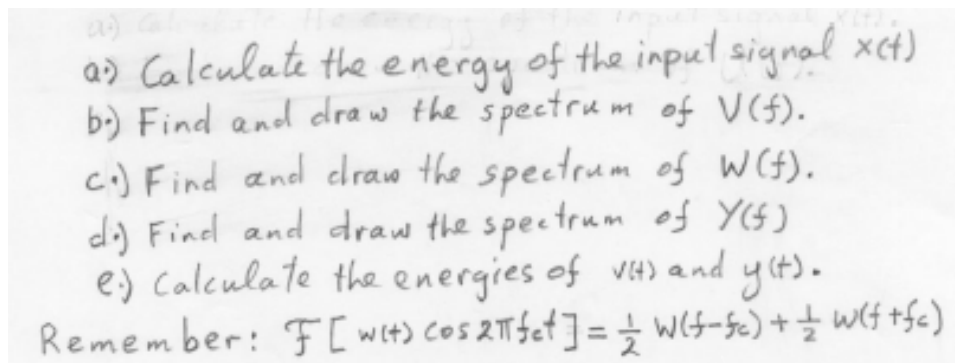 a.) Calculate the energy of the input signal x(t)
b.) Find and draw the spectrum of V(f).
c.) Find and draw the spectrum of W(f).
d.) Find and draw the spectrum of Y(f)
e.) Calculate the energies of v(t) and y(t).
Remember: F[w(t) cos2πfct] = 1/2 W(f-fc) + 1/2 W(f+fc)